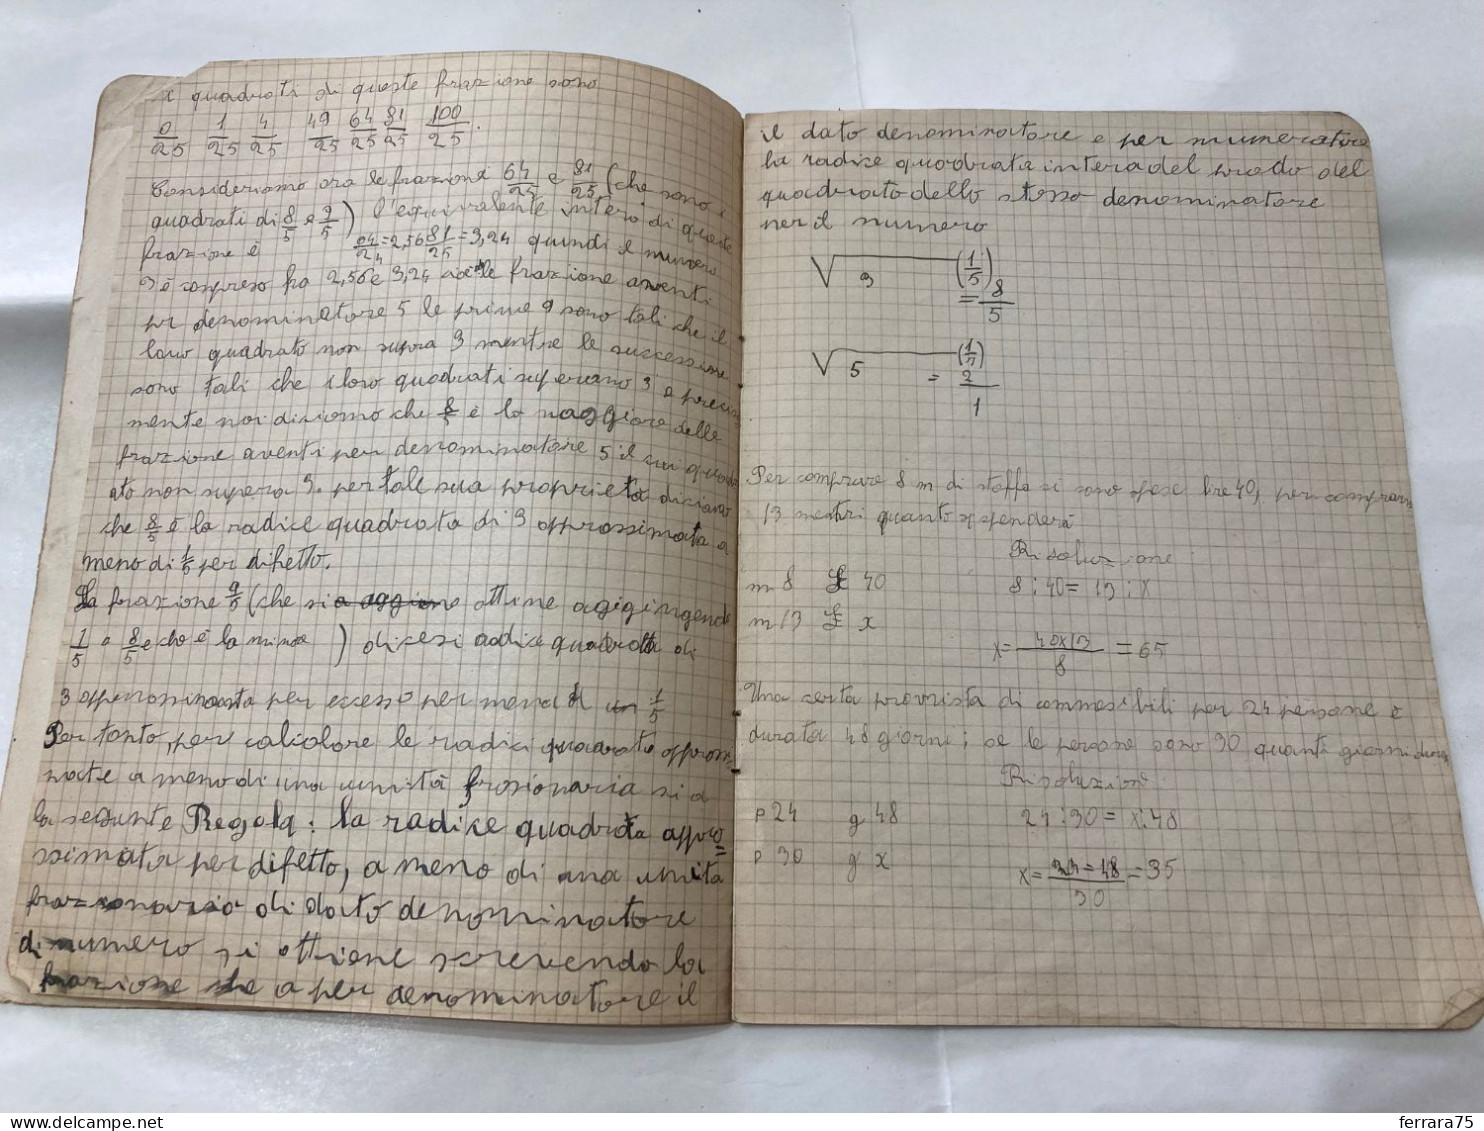 i quadrati di queste frazione sono
0/25 1/25 4/25 49/25 64/25 81/25 100/25.
Consideriamo ora le frazioni 64/25 e 81/25 (che sono i
quadrati di 8/5 e 9/5) l'equivalente intero di queste
frazione è 64/25=2,56 81/25=3,24 quindi il numero
3 è compreso fra 2,56 e 3,24 le frazione aventi
per denominatore 5 le prime 9 sono tali che il
loro quadrato non supra 3 mentre le successione
sono tali che i loro quadrati superano 3 e precisa
mente noi diciamo che 8/5 è la maggiore delle
frazione aventi per denominatore 5 il cui quadr
ato non supera 3. per tale sua proprietà diciamo
che 8/5 è la radice quadrata di 3 approssimata a
meno di 1/5 per difetto.
La frazione 9/5 (che si ottine agigingendo
1/5 a 8/5 e che è la minore ) dicesi radice quadrata di
3 approssimata per eccesso per meno di un 1/5
Per tanto, per calcolare le radici quadrate approssi
mate a meno di una unità frazionaria si a
la seguente Regola: la radice quadrata appro=
ssimata per difetto, a meno di una unita
frazionaria di dato denominatore
di numero si ottiene screvendo la
frazione che a per denominatore il
il dato denominatore e per numeratore
la radice quadrata intera del prodo del
quadrato dello stesso denominatore
per il numero
√3 (1/5)
= 8/5
√5 (1/7)
= 2/1
Per comprare 8 m di stoffa si sono spese lire 40, per comprarne
13 metri quanto spenderà
Risoluzione
m 8 £ 40 8 : 40 = 13 : x
m 13 £ x
x = 40x13/8 = 65
Una certa provvista di commestibili per 24 persone è
durata 48 giorni; se le persone sono 30 quanti giorni durera
Risoluzione
p 24 g 48 24 : 30 = x : 48
p 30 g x
x = 48/30 = 35
ferrara75